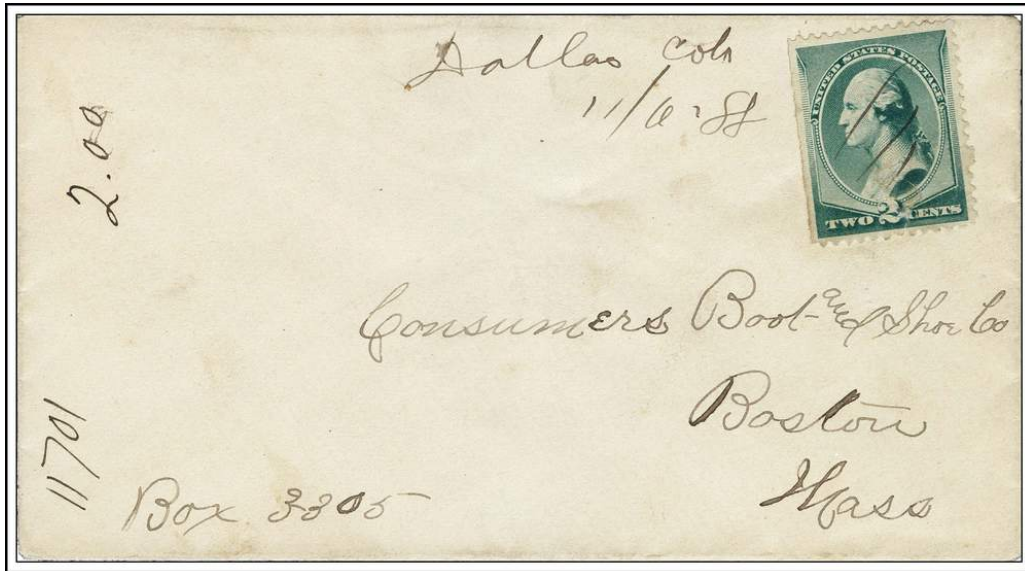 Dallas Colo
11/6 '88
UNITED STATES POSTAGE
TWO 2 CENTS
2.00
Consumers Boot and Shoe Co
Boston
Mass
11701
Box 3305